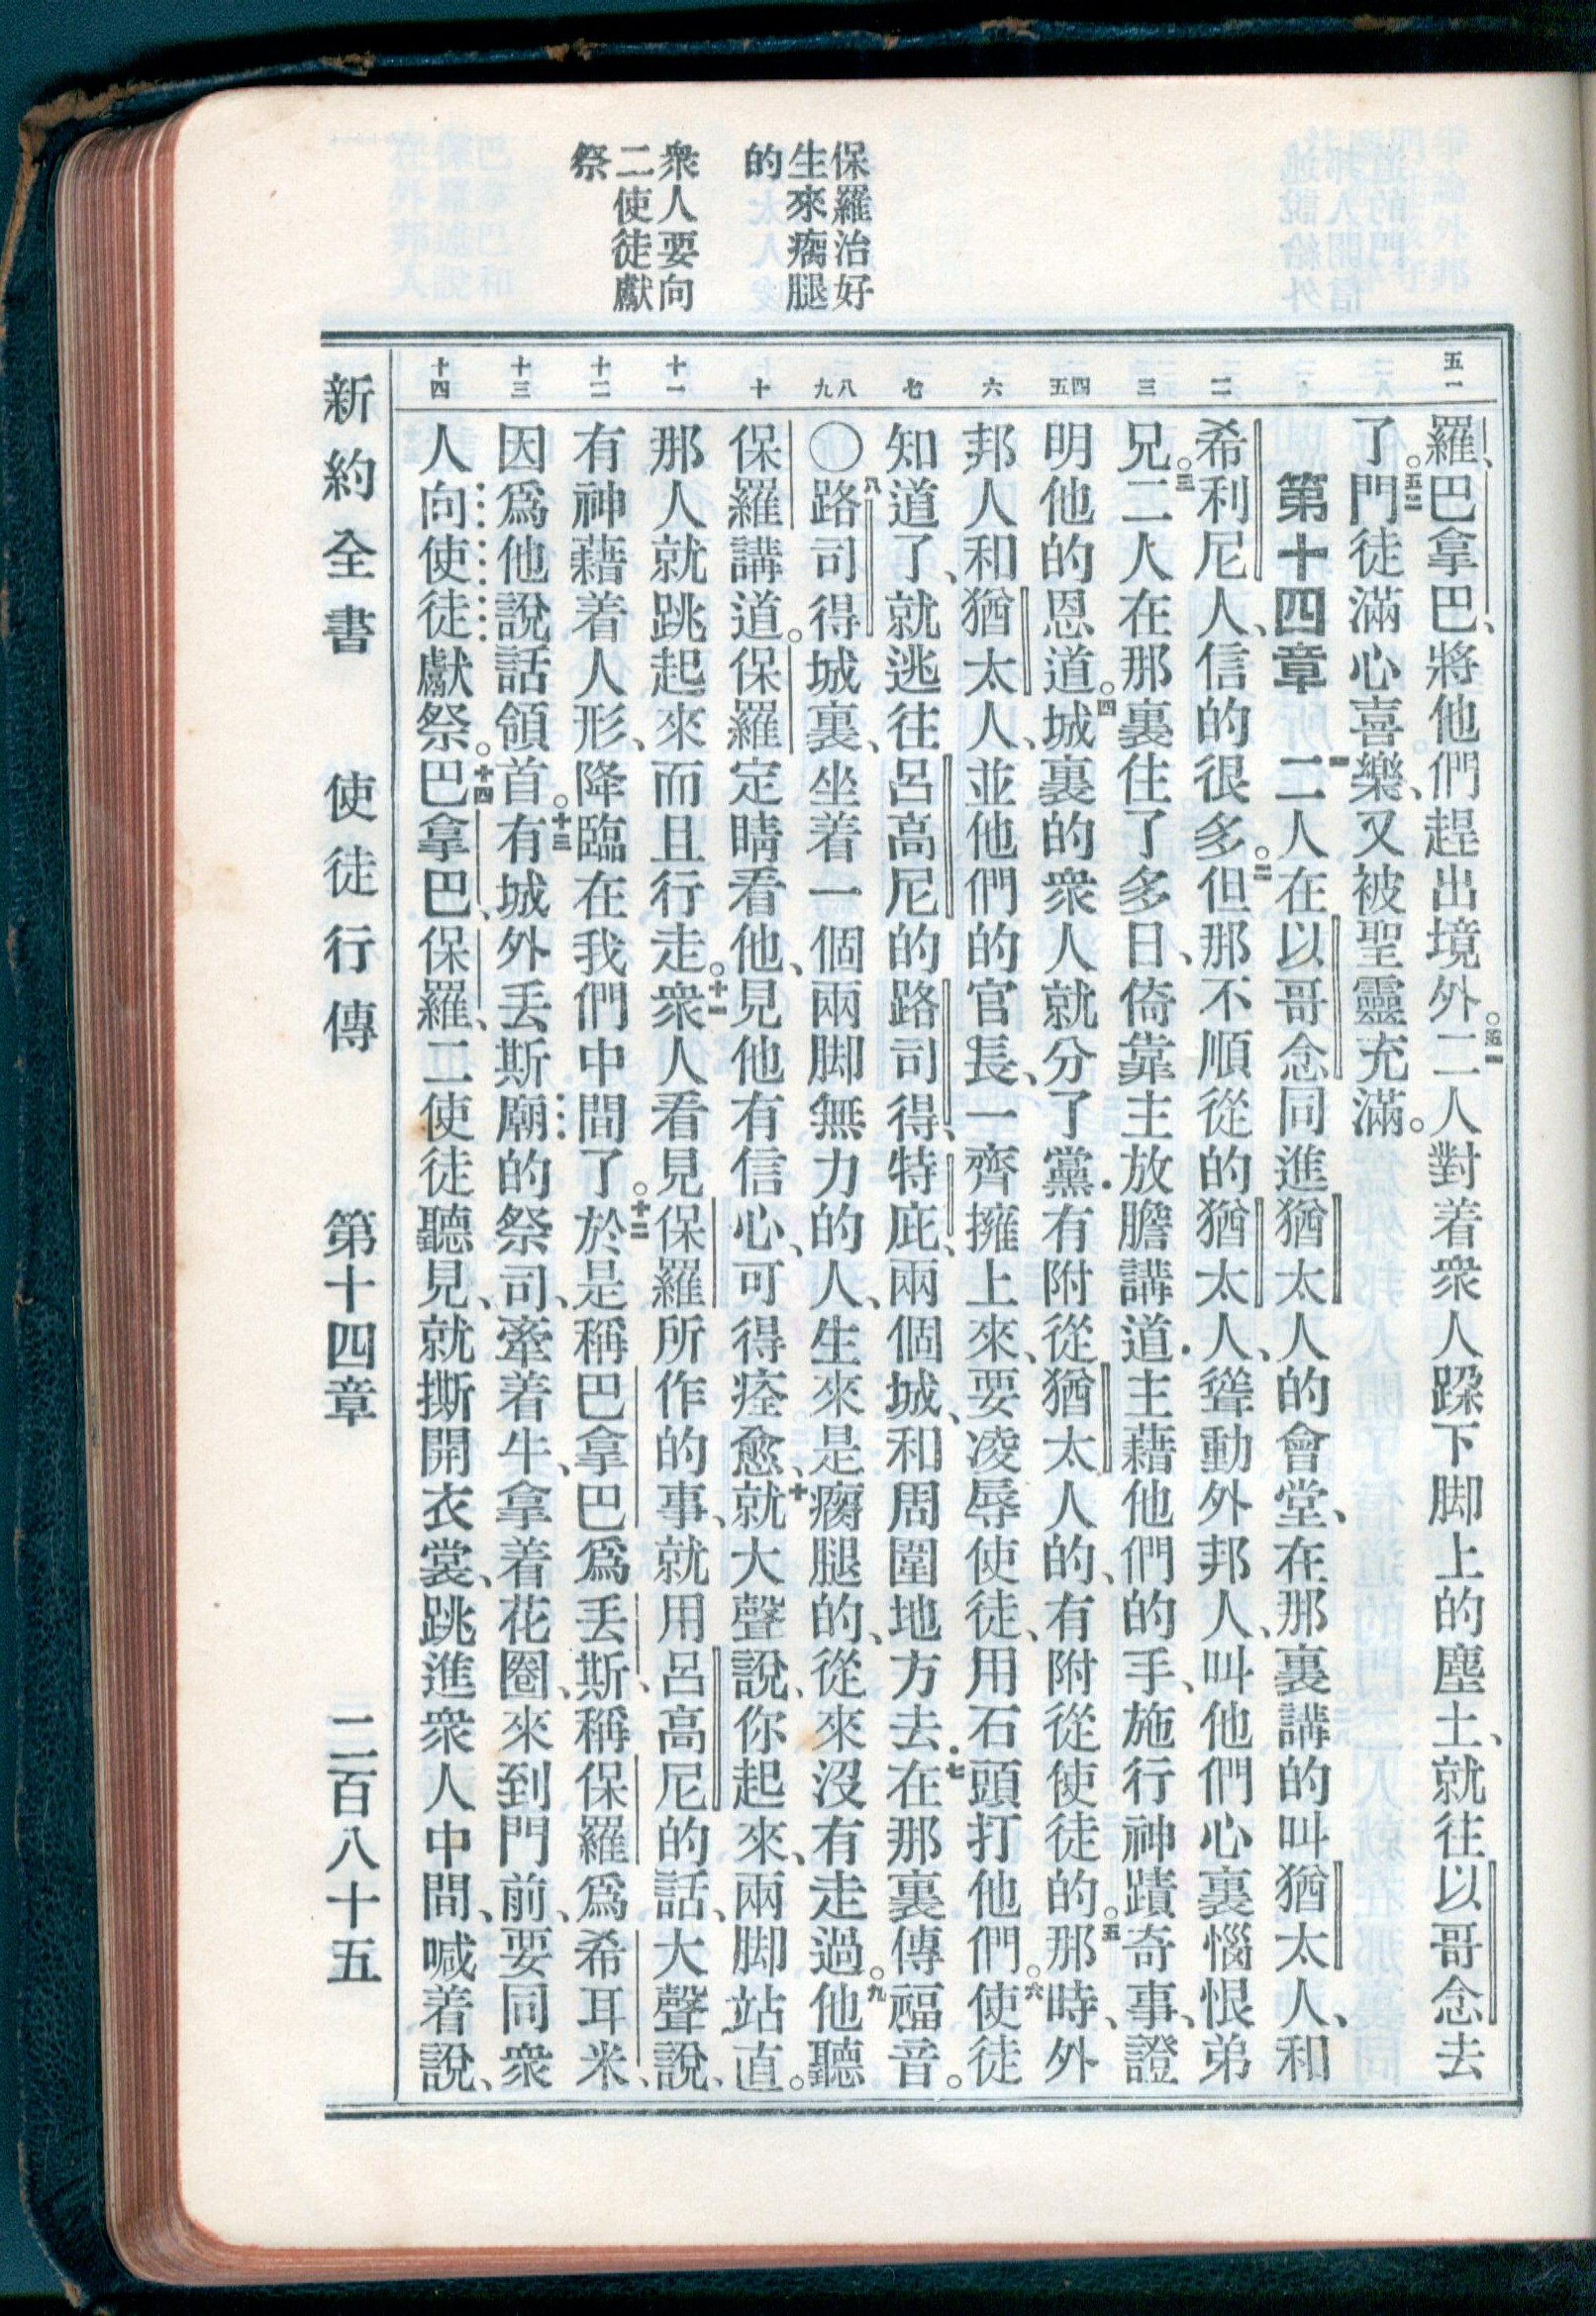 保羅治好
生來瘸腿
的
衆人要向
二使徒獻
祭
五一
二
三
四
五
六
七
八
九
十
十一
十二
十三
十四
羅、巴拿巴、將他們趕出境外。五一二人對着衆人跺下脚上的塵土、就往以哥念去
了。五二門徒滿心喜樂、又被聖靈充滿。
第十四章 一二人在以哥念同進猶太人的會堂、在那裏講的叫猶太人、和
希利尼人、信的很多。二但那不順從的猶太人、聳動外邦人、叫他們心裏惱恨弟
兄。三二人在那裏住了多日、倚靠主放膽講道．主藉他們的手、施行神蹟奇事、證
明他的恩道。四城裏的衆人就分了黨．有附從猶太人的、有附從使徒的。五那時、外
邦人和猶太人、並他們的官長、一齊擁上來、要凌辱使徒、用石頭打他們。六使徒
知道了、就逃往呂高尼的路司得、特庇、兩個城、和周圍地方去．七在那裏傳福音。
〇八路司得城裏、坐着一個兩脚無力的人、生來是瘸腿的、從來沒有走過。九他聽
保羅講道。保羅定睛看他、見他有信心、可得痊愈、十就大聲說、你起來、兩脚站直。
那人就跳起來而且行走。十一衆人看見保羅所作的事、就用呂高尼的話、大聲說、
有神藉着人形、降臨在我們中間了。十二於是稱巴拿巴爲丟斯、稱保羅爲希耳米、
因爲他說話領首。十三有城外丟斯廟的祭司、牽着牛、拿着花圈、來到門前、要同衆
人向使徒獻祭。十四巴拿巴、保羅、二使徒聽見、就撕開衣裳、跳進衆人中間、喊着說、
新約全書 使徒行傳 第十四章 二百八十五